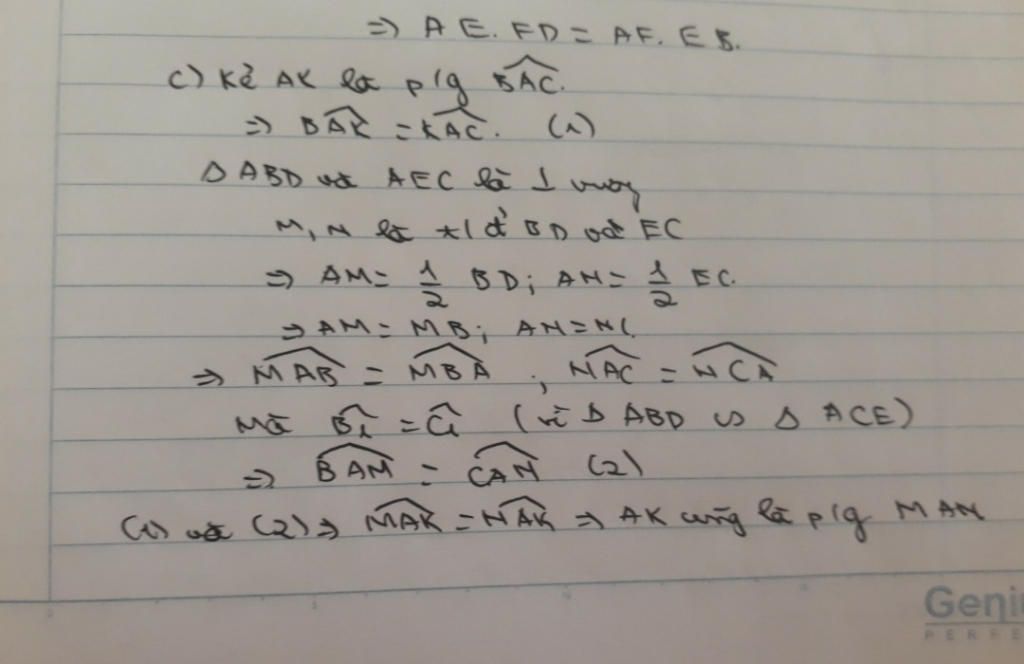 => AE.FD = AF.EB.
c) Kẻ AK là p/g BAC.
=> BAK = KAC. (1)
Δ ABD và AEC là Δ vuông
M, N là t/đ BD và EC
=> AM = 1/2 BD; AN = 1/2 EC.
=> AM = MB; AN = NC
=> MAB = MBA ; NAC = NCA
Mà B1 = C1 (vì Δ ABD ∽ Δ ACE)
=> BAM = CAN (2)
(1) và (2) => MAK = NAK => AK cũng là p/g MAN